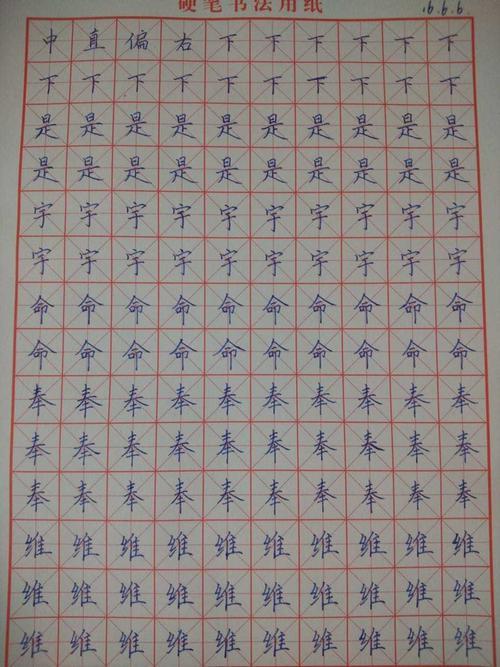 硬笔书法用纸 16.6.6.
中直偏右下下下下下下
下下下下下下下下下下
是是是是是是是是是是
是是是是是是是是是是
宇宇宇宇宇宇宇宇宇宇
宇宇宇宇宇宇宇宇宇宇
命命命命命命命命命命
命命命命命命命命命命
奉奉奉奉奉奉奉奉奉奉
奉奉奉奉奉奉奉奉奉奉
奉奉奉奉奉奉奉奉奉奉
维维维维维维维维维维
维维维维维维维维维维
维维维维维维维维维维